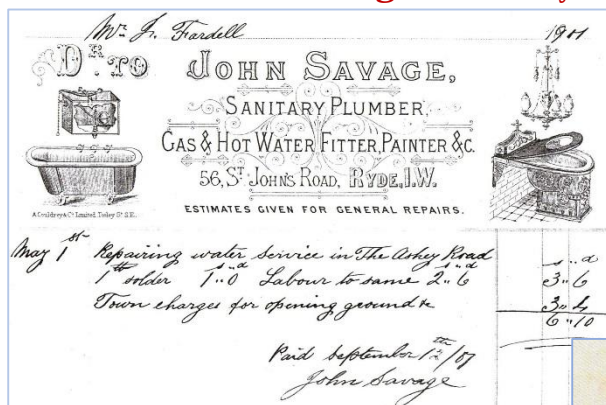 Mr J. Fardell 1901
Dr. TO
JOHN SAVAGE,
SANITARY PLUMBER,
GAS & HOT WATER FITTER, PAINTER &C.
56, ST JOHN'S ROAD, RYDE, I.W.
ESTIMATES GIVEN FOR GENERAL REPAIRS.
May 1st Repairing water service in The Ashey Road
1 lb solder 1"0 Labour to same 2"6 3"6
Town charges for opening ground &c 3"4
6"10
Paid September 12th/01
John Savage